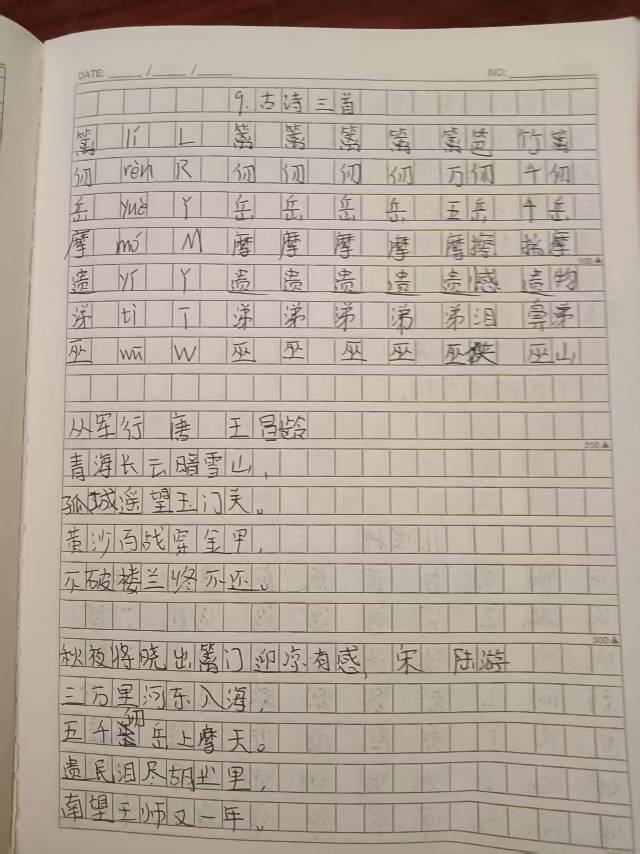 DATE: ____/____/____ NO: ________
9. 古诗三首
篱 lí L 篱 篱 篱 篱 篱笆 竹篱
仞 rèn R 仞 仞 仞 仞 万仞 千仞
岳 yuè Y 岳 岳 岳 岳 五岳 千岳
摩 mó M 摩 摩 摩 摩 摩擦 揣摩
100▲
遗 yí Y 遗 遗 遗 遗 遗感 遗物
涕 tì T 涕 涕 涕 涕 涕泪 鼻涕
巫 wū W 巫 巫 巫 巫 巫 巫山
从军行 唐 王昌龄
200▲
青海长云暗雪山,
孤城遥望玉门关。
黄沙百战穿金甲,
不破楼兰终不还。
300▲
秋夜将晓出篱门迎凉有感, 宋 陆游
三万里河东入海,
五千仞岳上摩天。
遗民泪尽胡尘里,
南望王师又一年。